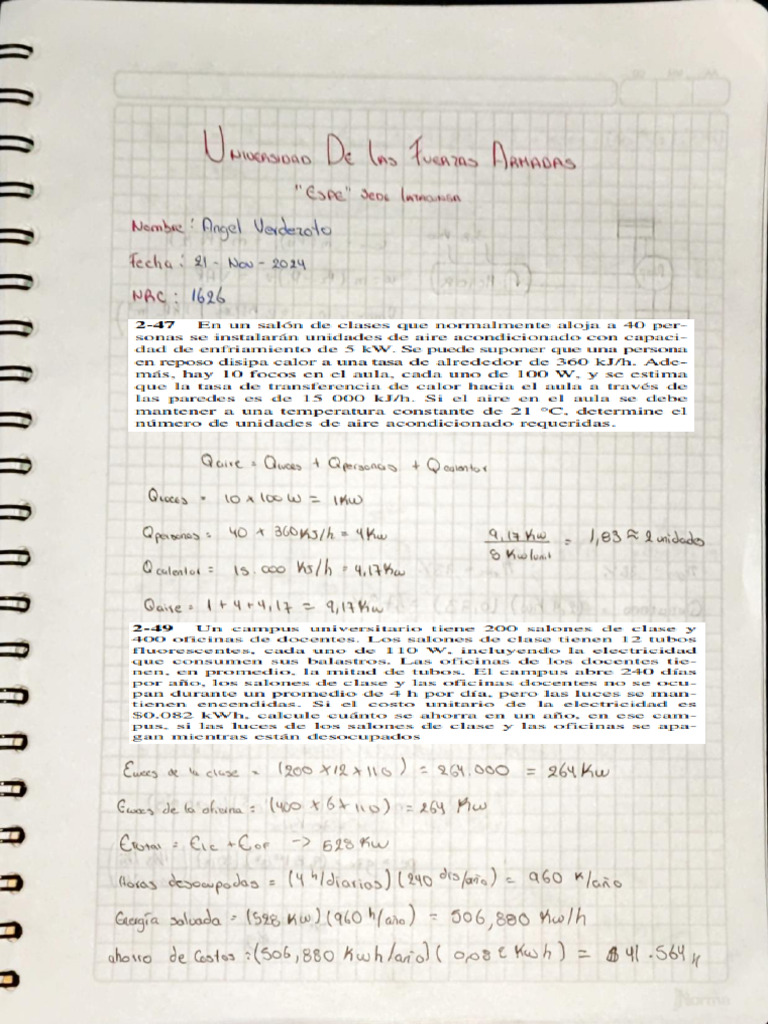 Universidad De las Fuerzas Armadas
"Espe" sede Latacunga
Nombre: Angel Verdezoto
Fecha: 21 - Nov - 2024
NRC: 1626
2-47 En un salón de clases que normalmente aloja a 40 per-
sonas se instalarán unidades de aire acondicionado con capaci-
dad de enfriamiento de 5 kW. Se puede suponer que una persona
en reposo disipa calor a una tasa de alrededor de 360 kJ/h. Ade-
más, hay 10 focos en el aula, cada uno de 100 W, y se estima
que la tasa de transferencia de calor hacia el aula a través de
las paredes es de 15 000 kJ/h. Si el aire en el aula se debe
mantener a una temperatura constante de 21 °C, determine el
número de unidades de aire acondicionado requeridas.
Qaire = Qluces + Qpersonas + Qcalentor
Qluces = 10 x 100 W = 1Kw
Qpersonas = 40 x 360KJ/h = 4Kw
9,17 Kw / 5 Kw/unit = 1,83 ≈ 2 unidades
Qcalentor = 15.000 KJ/h = 4,17Kw
Qaire = 1 + 4 + 4,17 = 9,17Kw
2-49 Un campus universitario tiene 200 salones de clase y
400 oficinas de docentes. Los salones de clase tienen 12 tubos
fluorescentes, cada uno de 110 W, incluyendo la electricidad
que consumen sus balastros. Las oficinas de los docentes tie-
nen, en promedio, la mitad de tubos. El campus abre 240 días
por año, los salones de clase y las oficinas docentes no se ocu-
pan durante un promedio de 4 h por día, pero las luces se man-
tienen encendidas. Si el costo unitario de la electricidad es
$0.082 kWh, calcule cuánto se ahorra en un año, en ese cam-
pus, si las luces de los salones de clase y las oficinas se apa-
gan mientras están desocupados
Eluces de la clase = (200 x 12 x 110) = 264.000 = 264 Kw
Eluces de la oficina = (400 x 6 x 110) = 264 Kw
Etotal = Elc + Eof -> 528 Kw
Horas desocupadas = (4 h/diarios) (240 dis/año) = 960 h/año
Energía salvada = (528 Kw) (960 h/año) = 506,880 Kw/h
ahorro de Costos : (506,880 Kwh/año) ( 0,082 Kwh) = $ 41.564
Norma